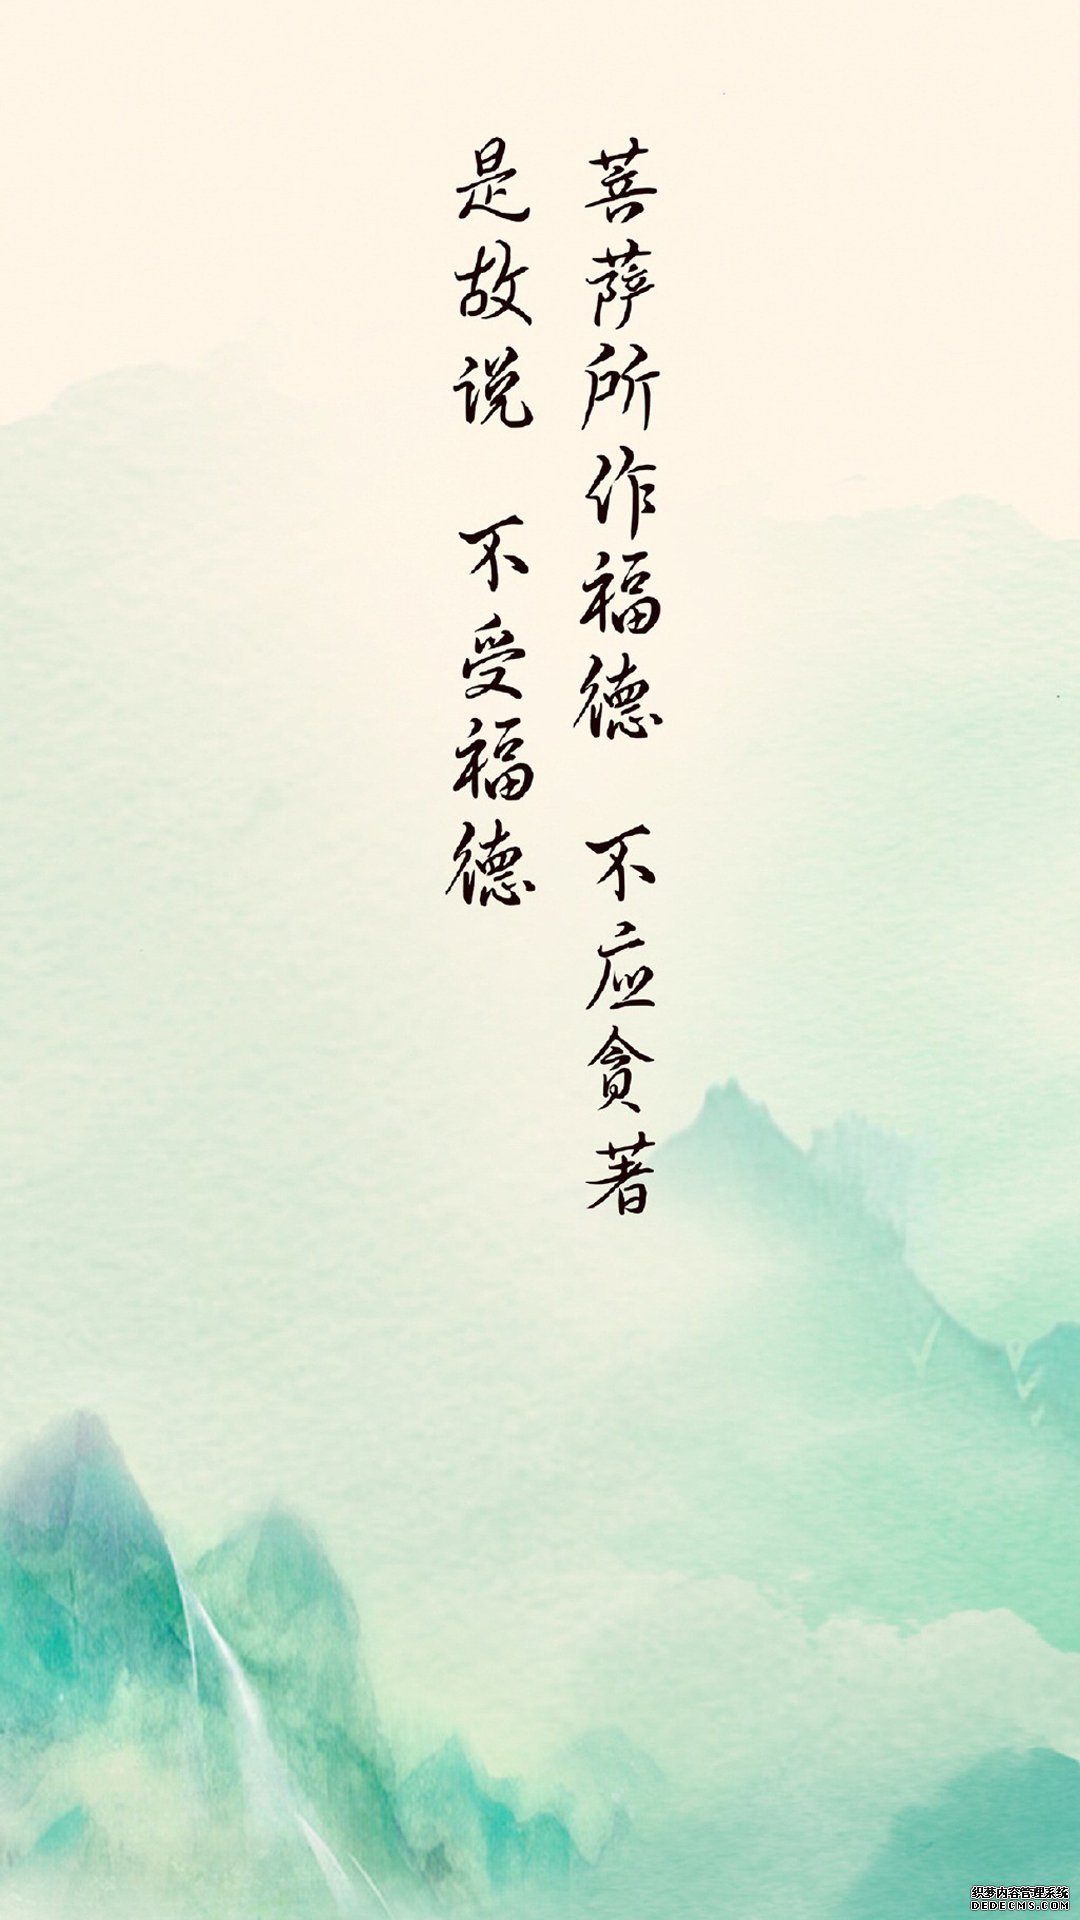 菩萨所作福德 不应贪著
是故说 不受福德
织梦内容管理系统
DEDECMS.COM